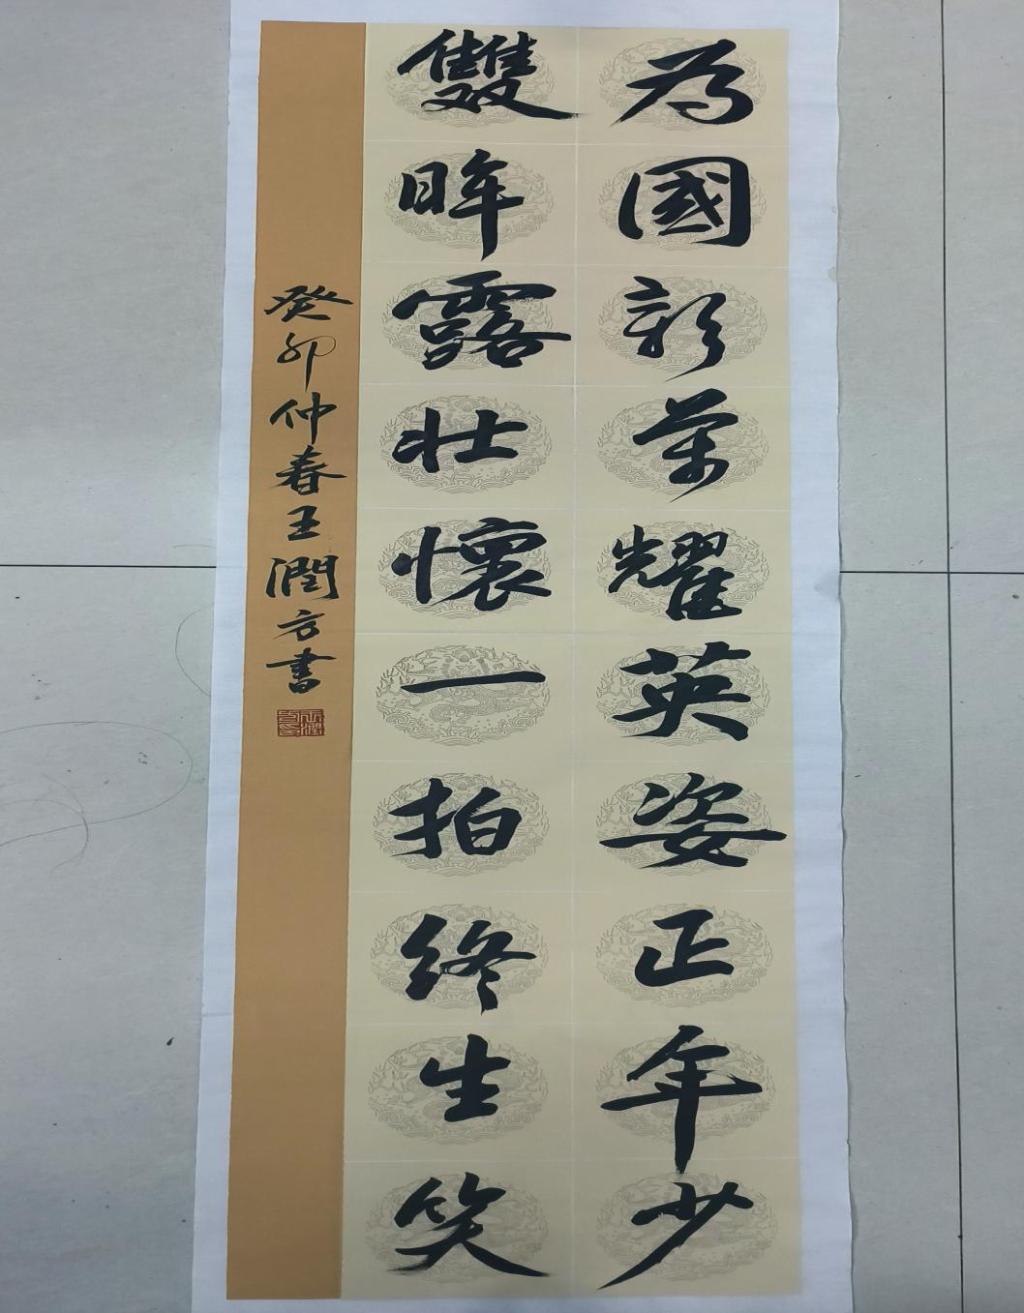 為國彰榮耀英姿正年少
雙眸露壯懷一拍終生笑
癸卯仲春王潤方書